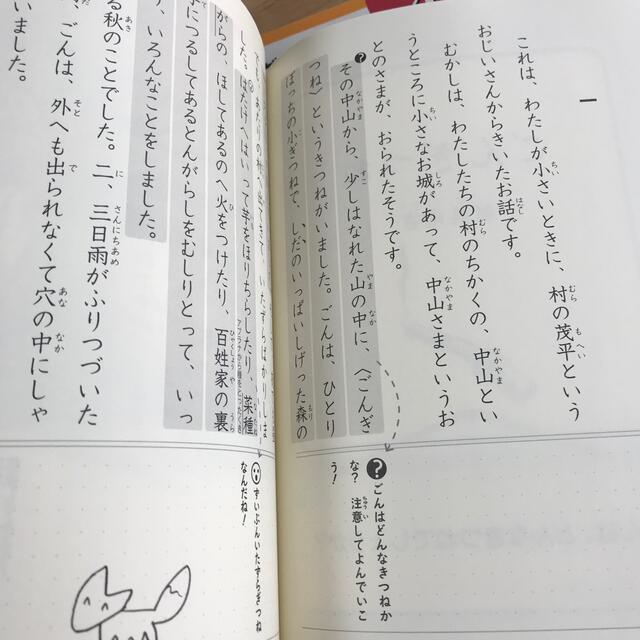 一
これは、わたしが小さいときに、村の茂平という
おじいさんからきいたお話です。
むかしは、わたしたちの村のちかくの、中山とい
うところに小さなお城があって、中山さまというお
とのさまが、おられたそうです。
その中山から、少しはなれた山の中に、〈ごんぎ
つね〉というきつねがいました。ごんは、ひとり
ぼっちの小ぎつねで、しだのいっぱいしげった森の
?
ごんはどんなきつねか
な? 注意してよんでいこ
う!
あたりの村へ出てきて、いたずらばかりしま
した。はたけへはいって芋をほりちらしたり、菜種
がらの、ほしてあるのへ火をつけたり、百姓家の裏
につるしてあるとんがらしをむしりとって、いっ
いろんなことをしました。
秋のことでした。二、三日雨がふりつづいた
ごんは、外へも出られなくて穴の中にしゃ
いました。
ずいぶんいたずらぎつね
なんだね!